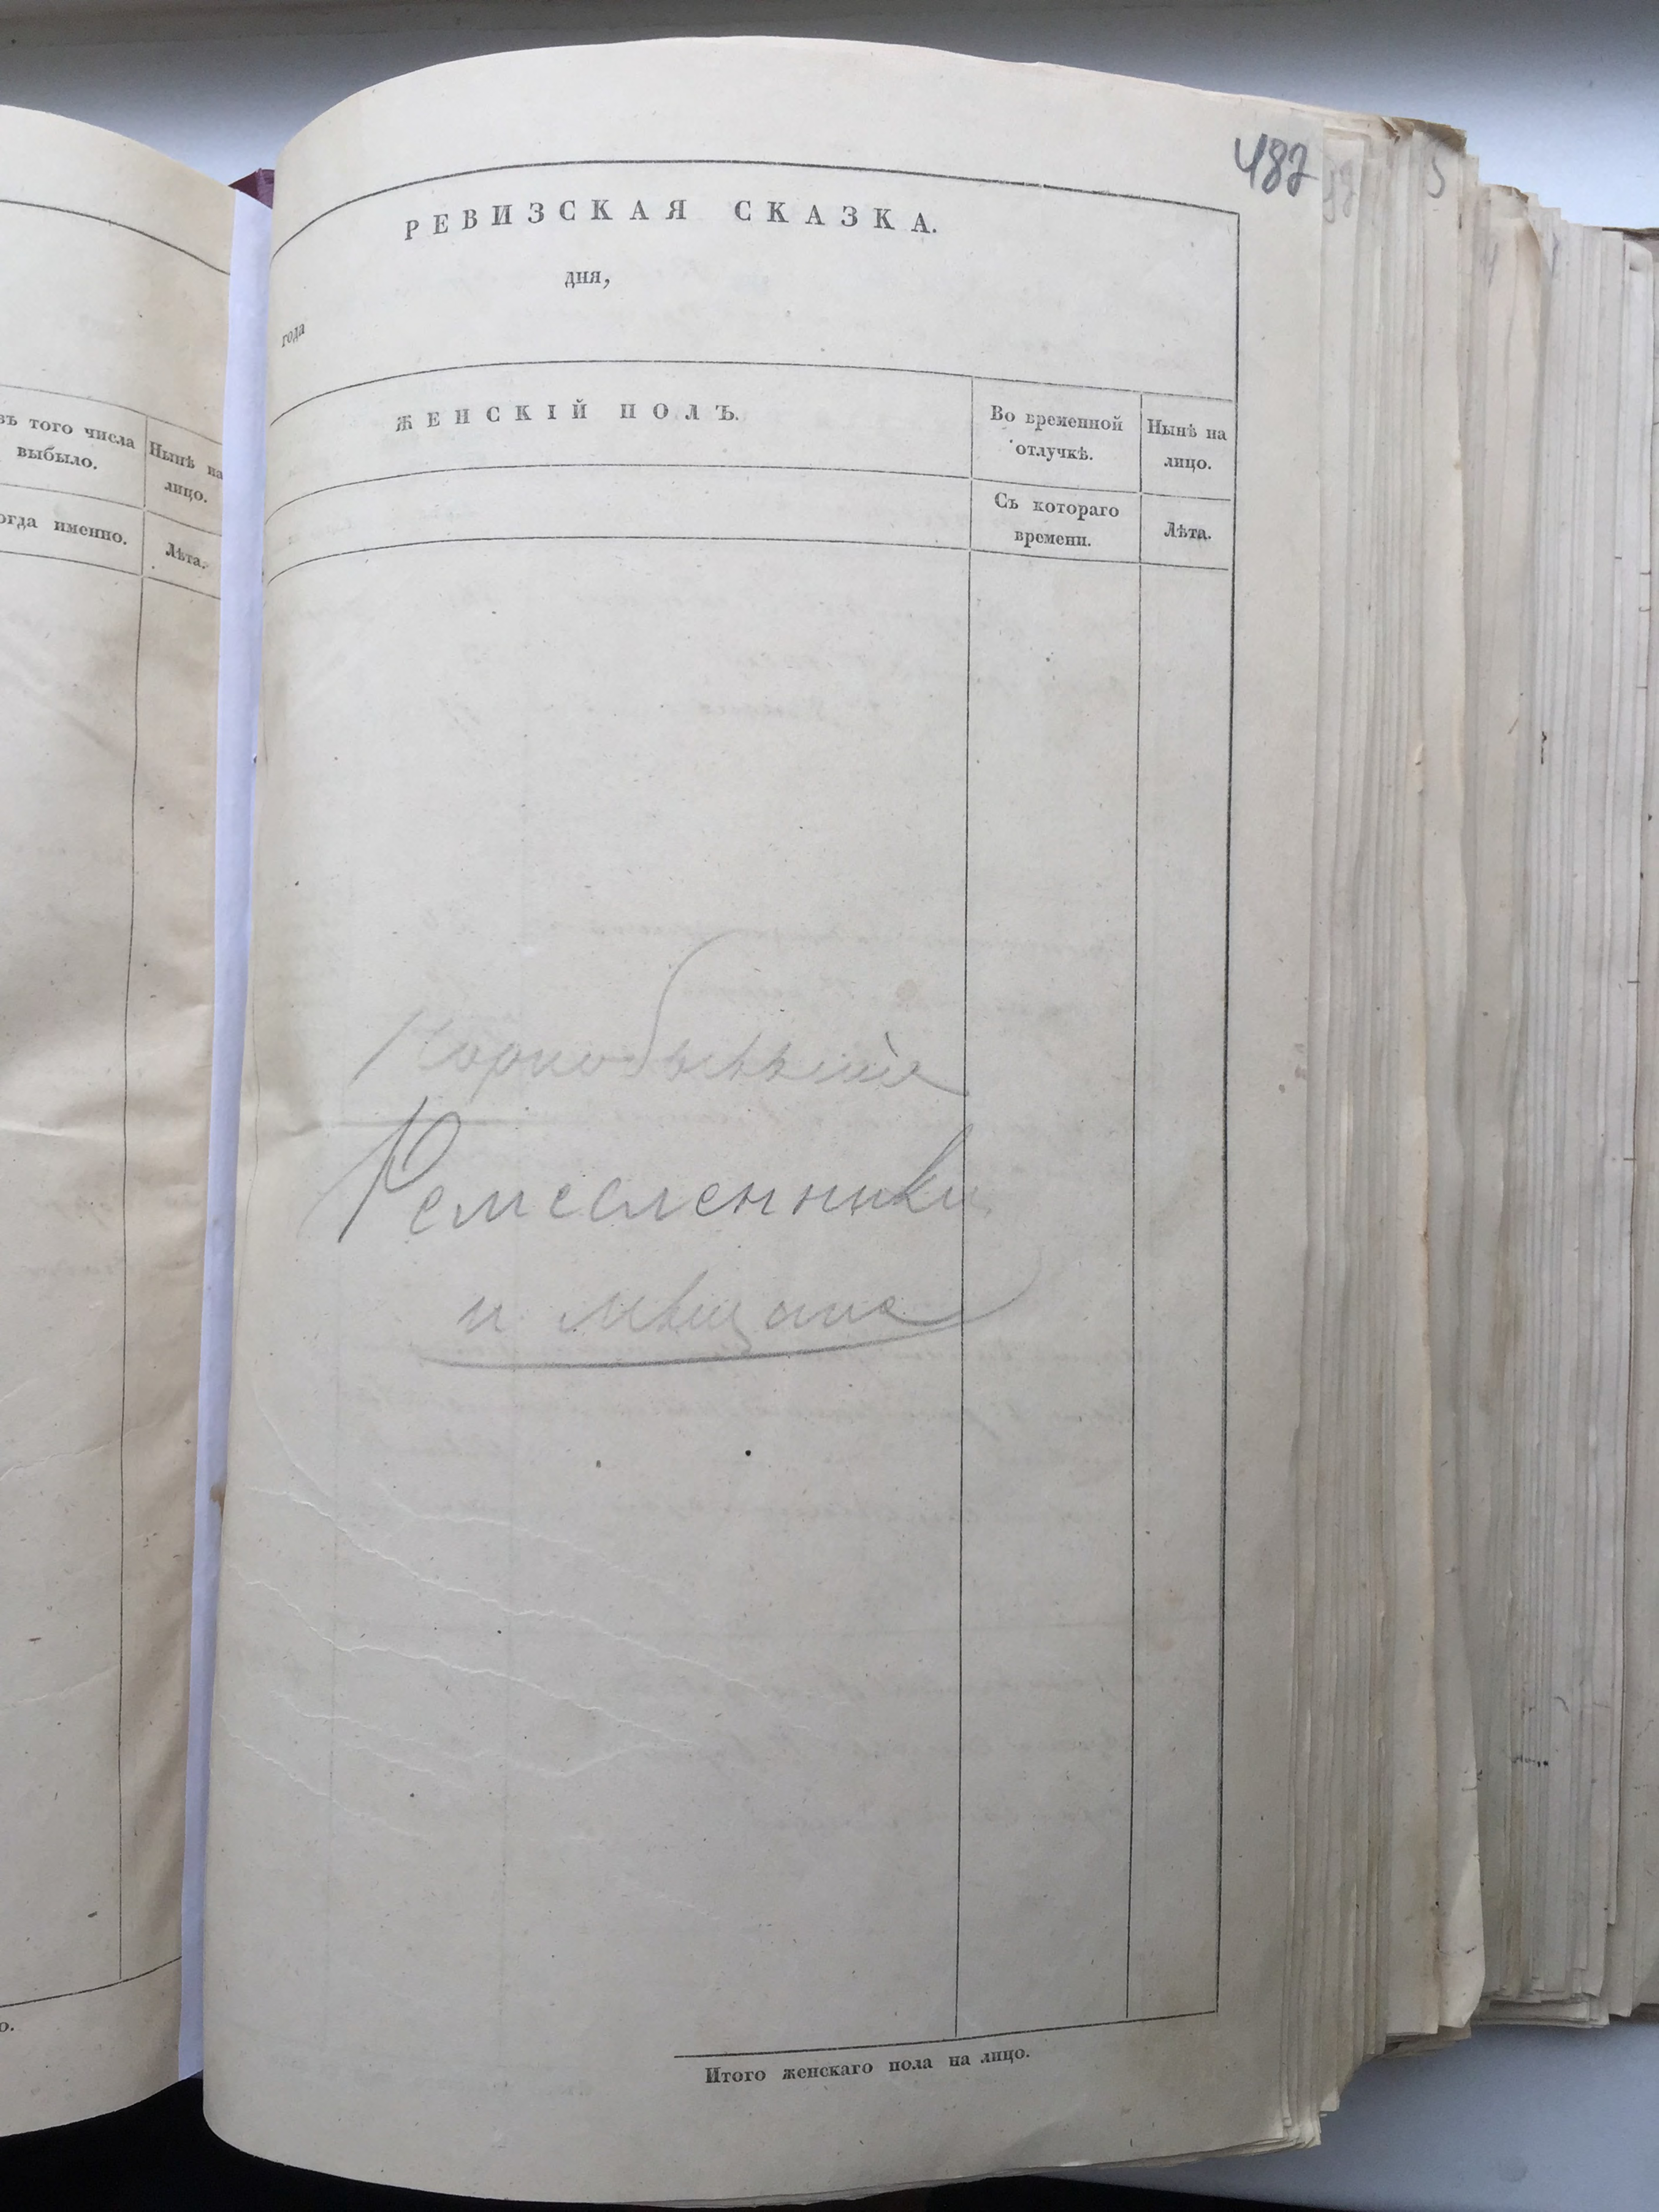 487
РЕВИЗСКАЯ СКАЗКА.
дня,
года
ЖЕНСКІЙ ПОЛЪ.
Во временной
отлучкѣ.
Нынѣ на
лицо.
Съ котораго
времени.
Лѣта.
того числа
выбыло.
Нынѣ на
лицо.
именно.
Лѣта.
Ремесленники
и мѣщане
Итого женскаго пола на лицо.